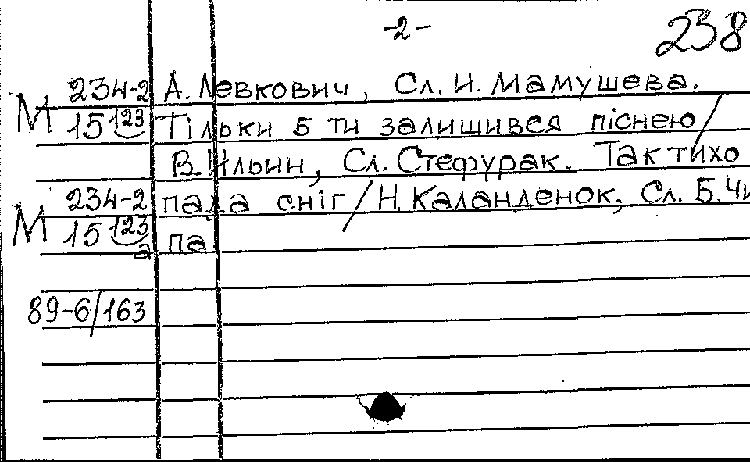 -2- 238
234-2 А. Левкович, Сл. И. Мамушева.
М 15 123 Тільки б ти залишився піснею/
В. Ильин, Сл. Стефурак. Так тихо
234-2 пада сніг/Н. Каланденок, Сл. Б. Чи
М 15 123 па
а
89-6/163